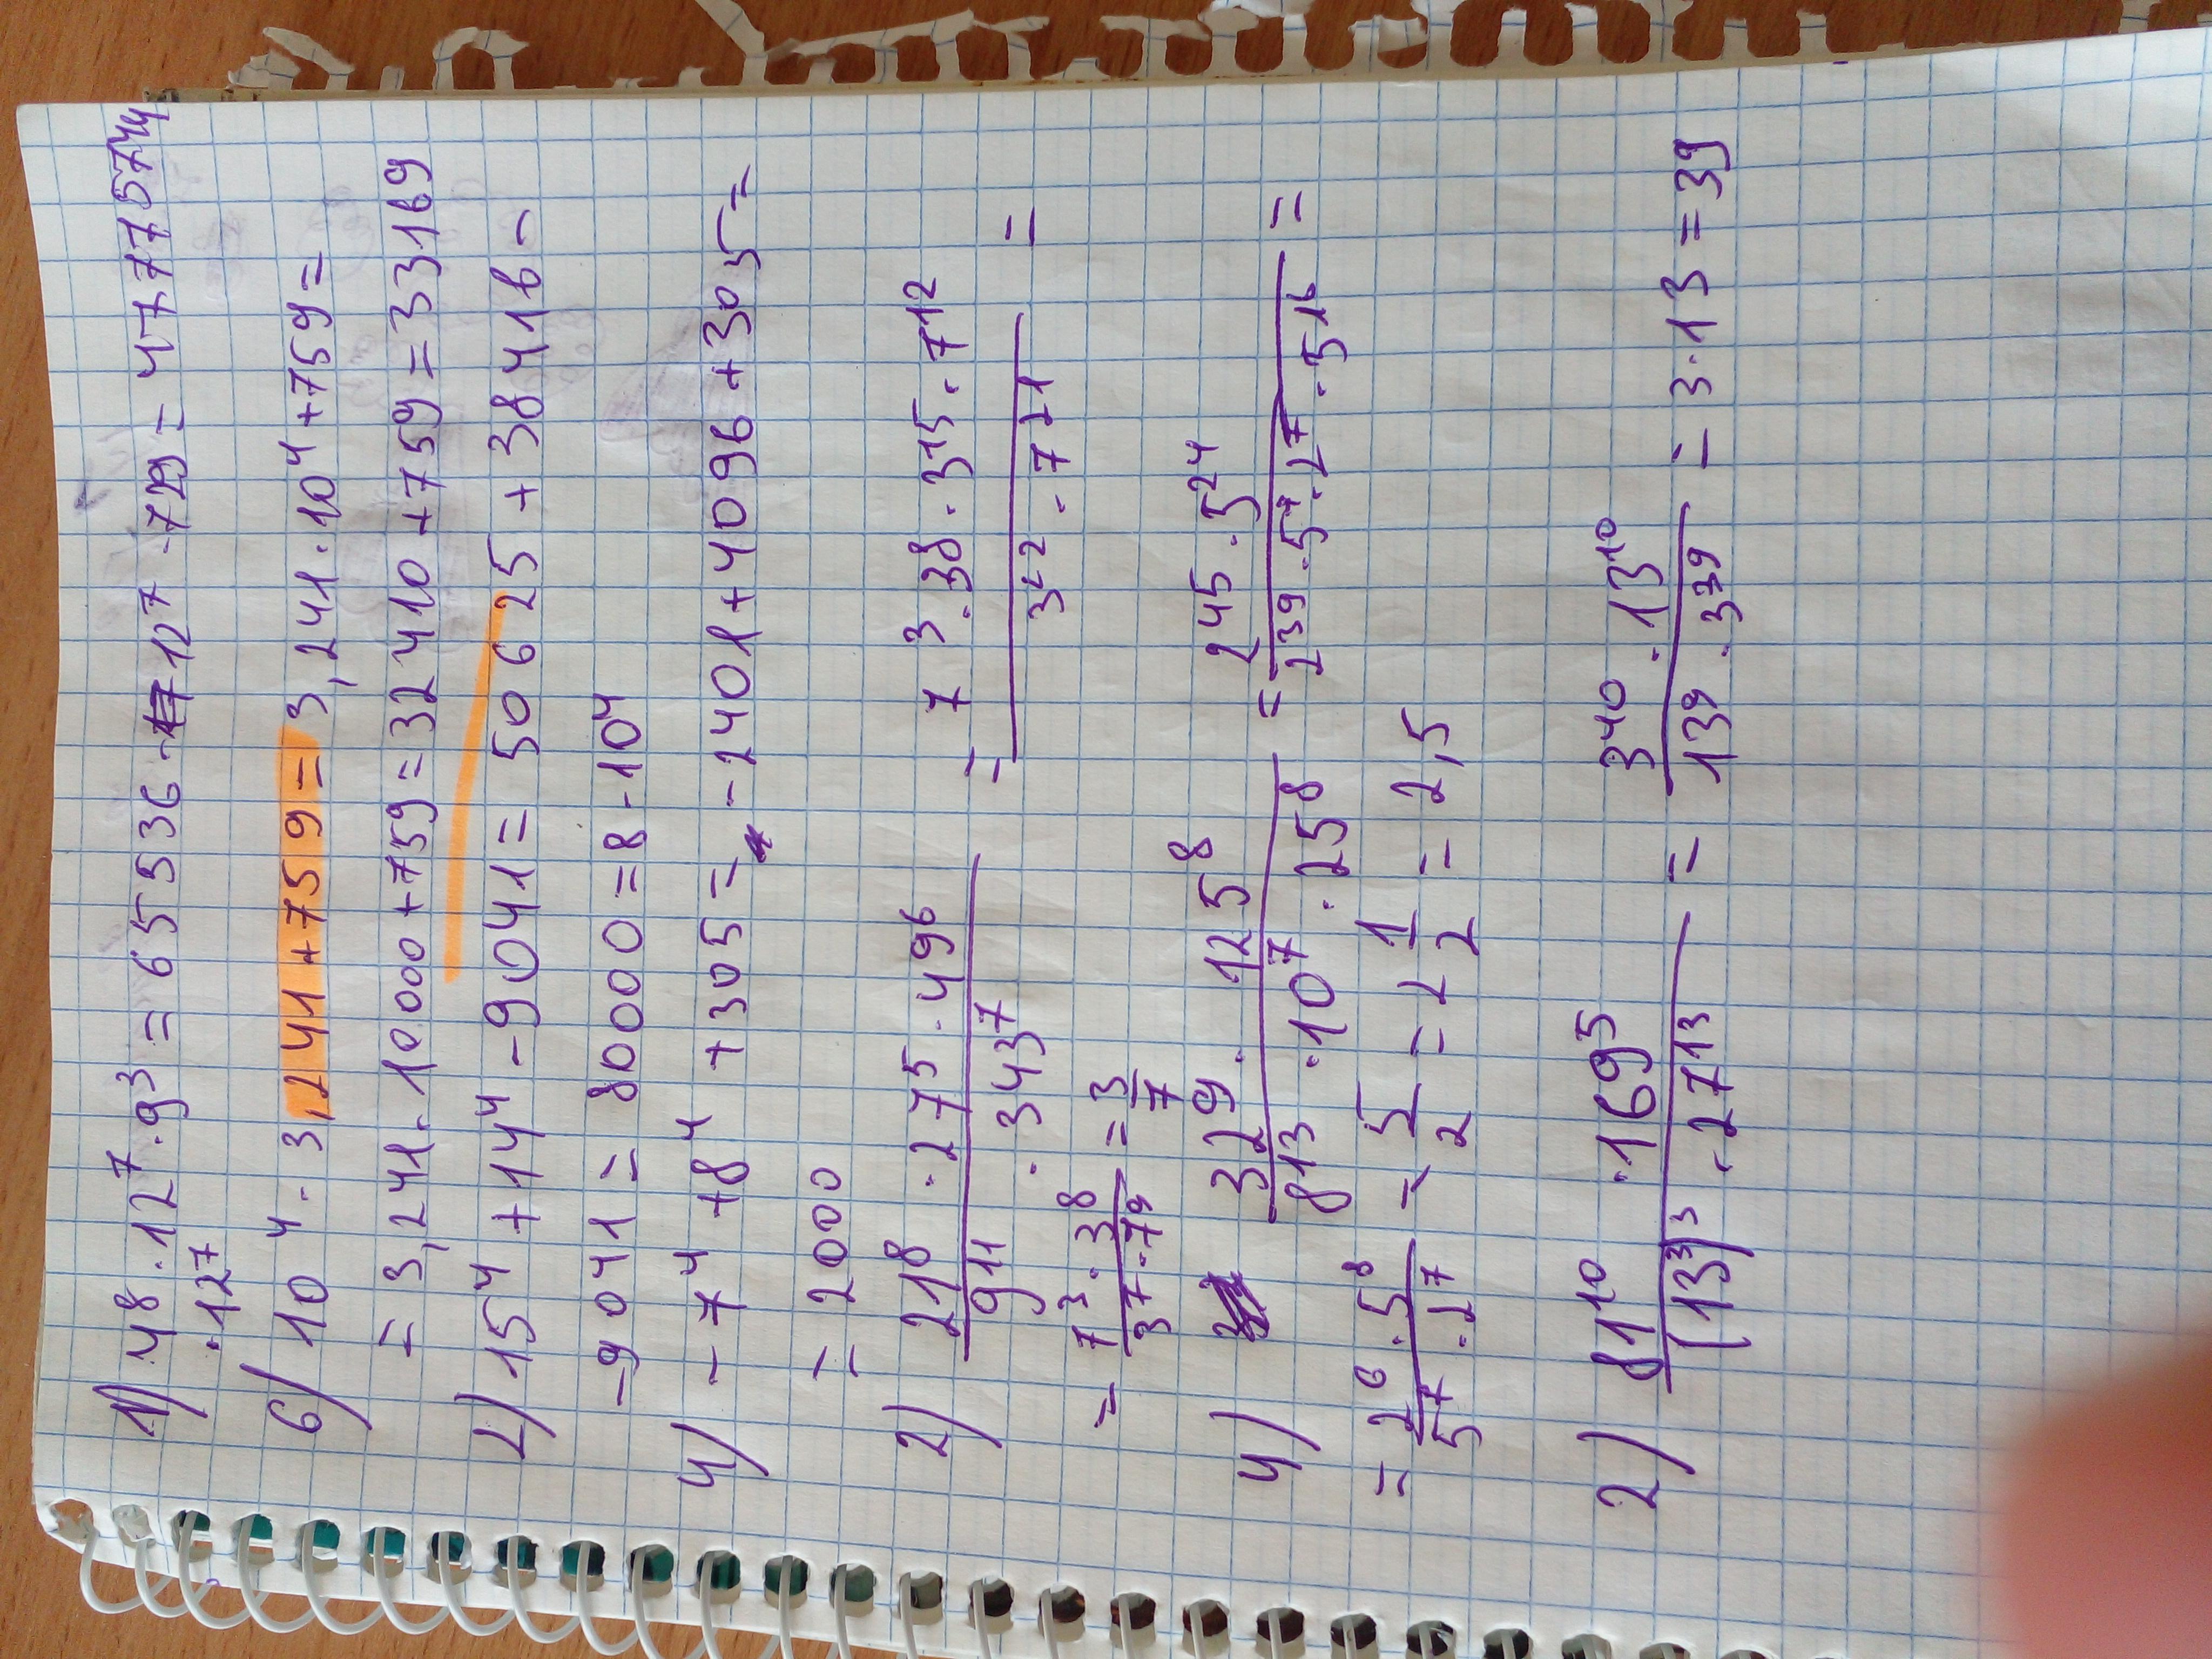 1) 48 · 127 · 93 = 65536 · 127 · 729 = 477757
· 127
6) 10⁴ · 3,241 + 759 = 3,241 · 10⁴ + 759 =
= 3,241 · 10000 + 759 = 32410 + 759 = 33169
2) 15⁴ + 14⁴ - 9041 = 50625 + 38416 -
- 9041 = 80000 = 8 · 10⁴
4) - 7⁴ + 8⁴ + 305 = - 2401 + 4096 + 305 =
= 2000
2) 21⁸ · 27⁵ · 49⁶ / 9¹¹ · 343⁷ = 7 3 · 38 · 3¹⁵ · 7¹² / 3²² · 7²¹ =
= 7³ · 3⁸ / 3⁷ · 7⁹ = 3/7
4) 32⁹ · 125⁸ / 8¹³ · 10⁷ · 25⁸ = 2⁴⁵ · 5²⁴ / 2³⁹ · 5⁷ · 2⁷ · 5¹⁶ =
= 2⁶ · 5⁸ / 5⁷ · 2⁷ = 5/2 = 2 1/2 = 2,5
2) 81¹⁰ · 169⁵ / (13³)³ · 27¹³ = 3⁴⁰ · 13¹⁰ / 13⁹ · 3³⁹ = 3 · 13 = 39